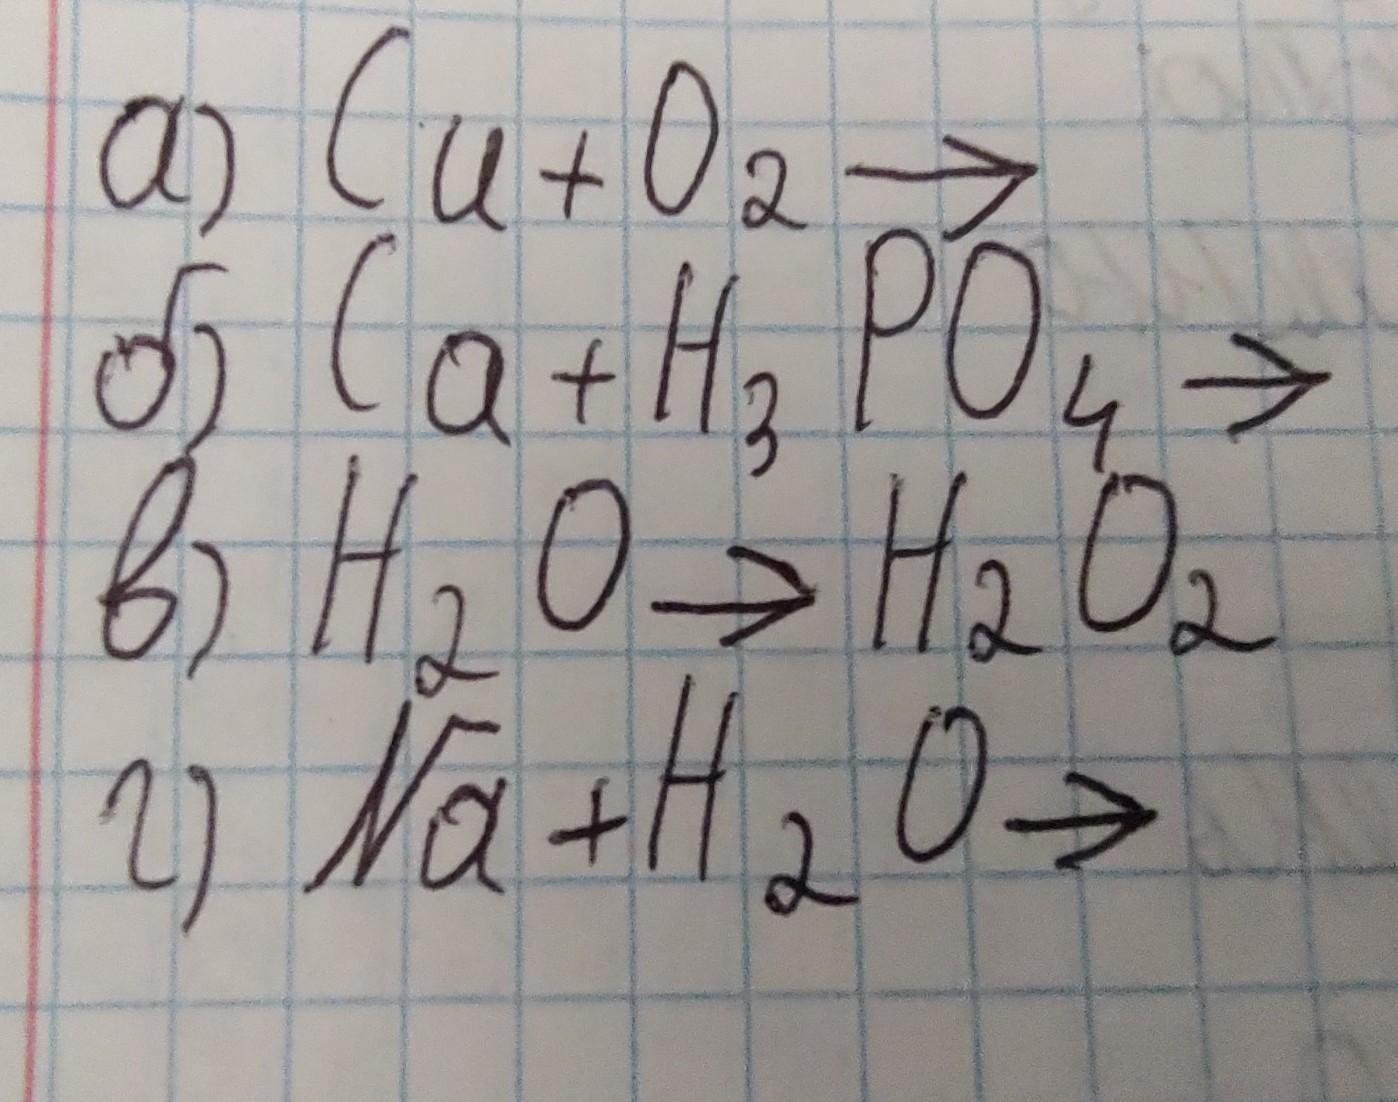 а) Cu + O₂ →
б) Ca + H₃PO₄ →
в) H₂O → H₂O₂
г) Na + H₂O →